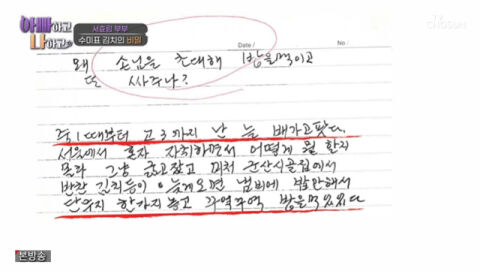 TV CHOSUN
아빠하고 나하고
서효림 부부
수미표 김치의 비밀
Date / No.
왜 손님을 초대해 밥을 먹이고
또 싸주나?
중1때부터 고3까지 난 늘 배가고팠다.
서울에서 혼자 자취하면서 어떻게 뭘 할지
몰라 그냥 굶고잤고 미처 군산시골집에서
반찬 김치등이 늦게오면 냄비에 밥만해서
단무지 한가지 놓고 꾸역꾸역 밥을먹었었다
본방송